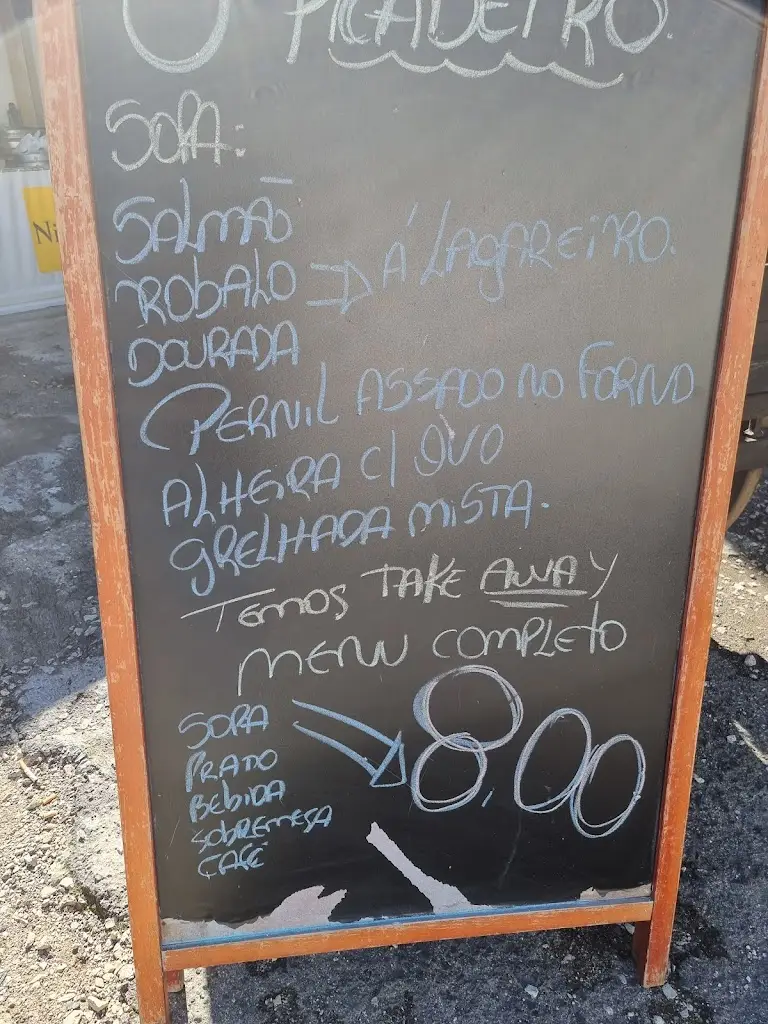 O PICADEIRO.
SOPA:
SALMÃO
ROBALO => Á LAGAREIRO.
DOURADA
PERNIL ASSADO NO FORNO
ALHEIRA C/ OVO
GRELHADA MISTA.
TEMOS TAKE AWAY
MENU COMPLETO
SOPA
PRATO
BEBIDA
SOBREMESA
CAFÉ
8,00
Ni